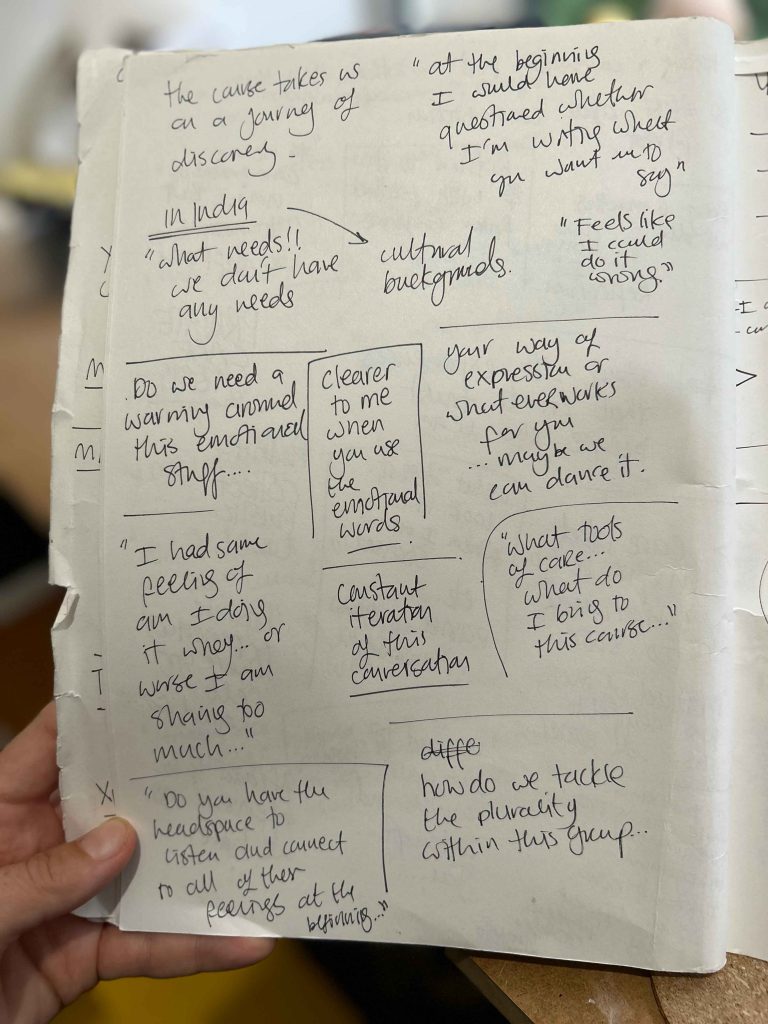 the course takes us
on a journey of
discovery.
"at the beginning
I would have
questioned whether
I'm writing what
you want me to
say"
in India
"what needs!!
we don't have
any needs
cultural
backgrounds.
"Feels like
I could
do it
wrong."
Do we need a
warning around
this emotional
stuff....
clearer
to me
when
you use
the
emotional
words
your way of
expression or
whatever works
for you
... maybe we
can dance it.
"I had same
feeling of
am I doing
it wrong... or
worse I am
sharing too
much..."
constant
iteration
of this
conversation
"what tools
of care...
what do
I bring to
this course..."
"Do you have the
headspace to
listen and connect
to all of their
feelings at the
beginning..."
diffe
how do we tackle
the plurality
within this group...